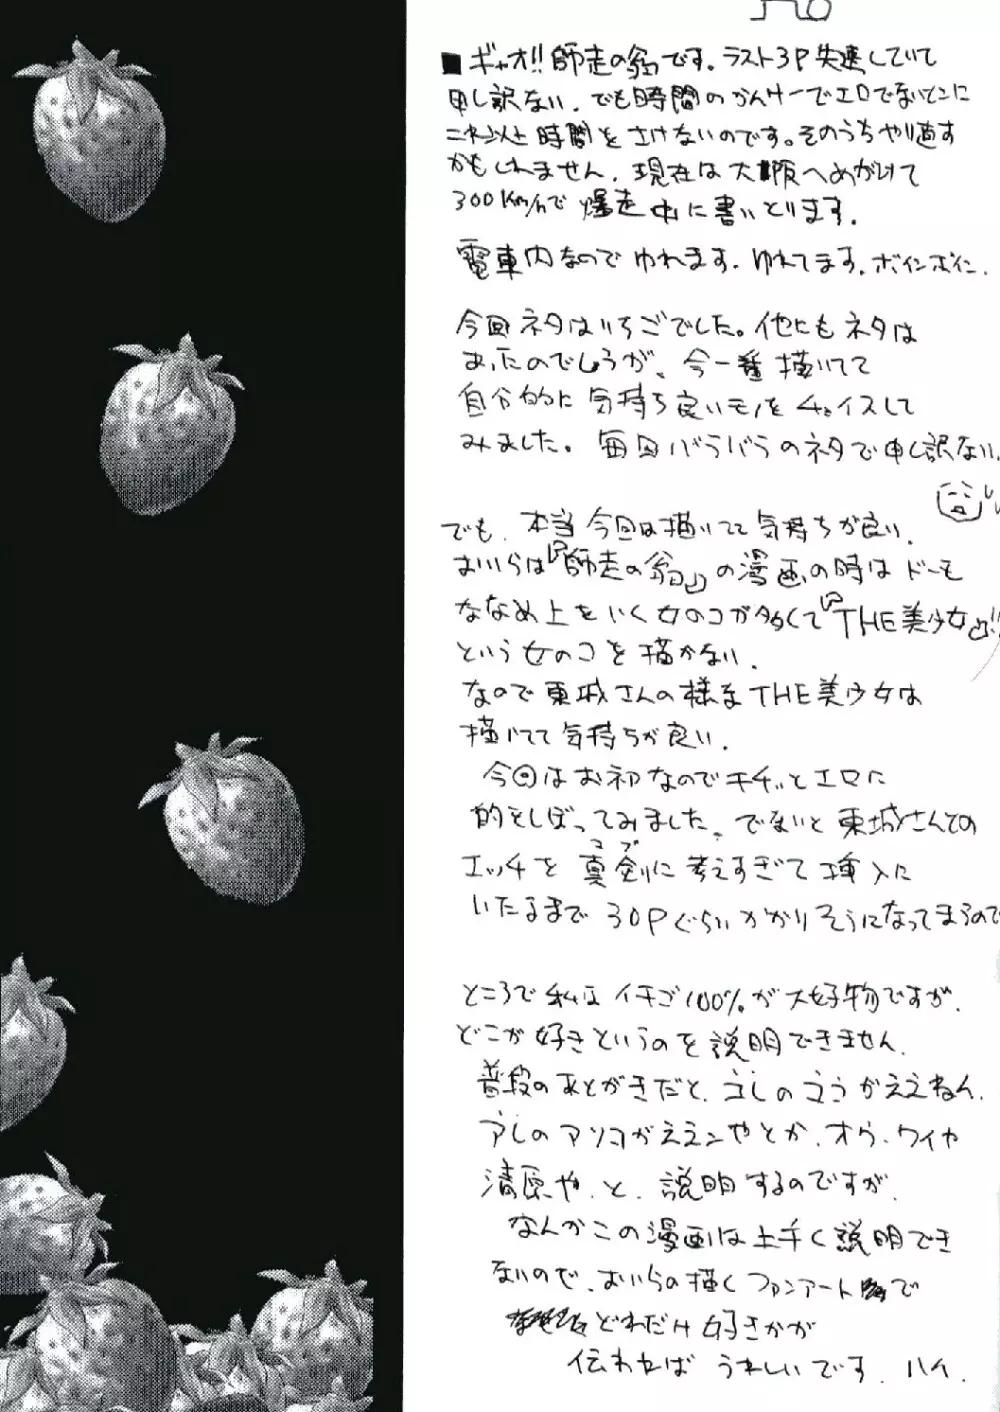 ■ギャオ!!師走の翁です。ラスト3P失速していて
申し訳ない。でも時間のかんけーでエロでないトコに
時間をさけないのです。そのうちやり直す
かもしれません。現在は大阪へめがけて
300Km/hで爆走中に書いとります。
電車内なのでゆれます。ゆれてます。ボインボイン。
今回ネタはいちごでした。他にもネタは
あったのでしょうが、今一番描いてて
自分的に気持ち良いモノをチョイスして
みました。毎回バラバラのネタで申し訳ない。
でも、本当今回は描いてて気持ちが良い。
おいらは『師走の翁』の漫画の時はドーモ
ななめ上をいく女のコが多くて『THE美少女』!!
という女のコを描かない。
なので東城さんの様なTHE美少女は
描いてて気持ちが良い。
今回はお初なのでキチッとエロに
的をしぼってみました。でないと東城さんての
エッチを真剣に考えすぎて挿入に
いたるまで30Pぐらいかかりそうになってまうので
ところで私はイチゴ100%が大好物ですが、
どこが好きというのを説明できません。
普段のあとがきだと、コレのココがええねん。
アレのアソコがええンやとか、オウ、ワイや
清原や、と、説明するのですが、
なんかこの漫画は上手く説明でき
ないので、おいらの描くファンアートで
どれだけ好きかが
伝われば うれしいです。ハイ。